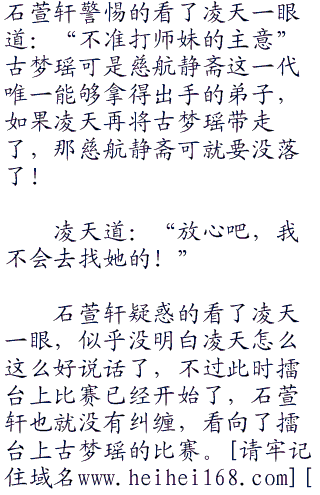 石萱轩警惕的看了凌天一眼
道：“不准打师妹的主意”
古梦瑶可是慈航静斋这一代
唯一能够拿得出手的弟子，
如果凌天再将古梦瑶带走
了，那慈航静斋可就要没落
了！
凌天道：“放心吧，我
不会去找她的！”
石萱轩疑惑的看了凌天
一眼，似乎没明白凌天怎么
这么好说话了，不过此时擂
台上比赛已经开始了，石萱
轩也就没有纠缠，看向了擂
台上古梦瑶的比赛。[请牢记
住域名www.heihei168.com][